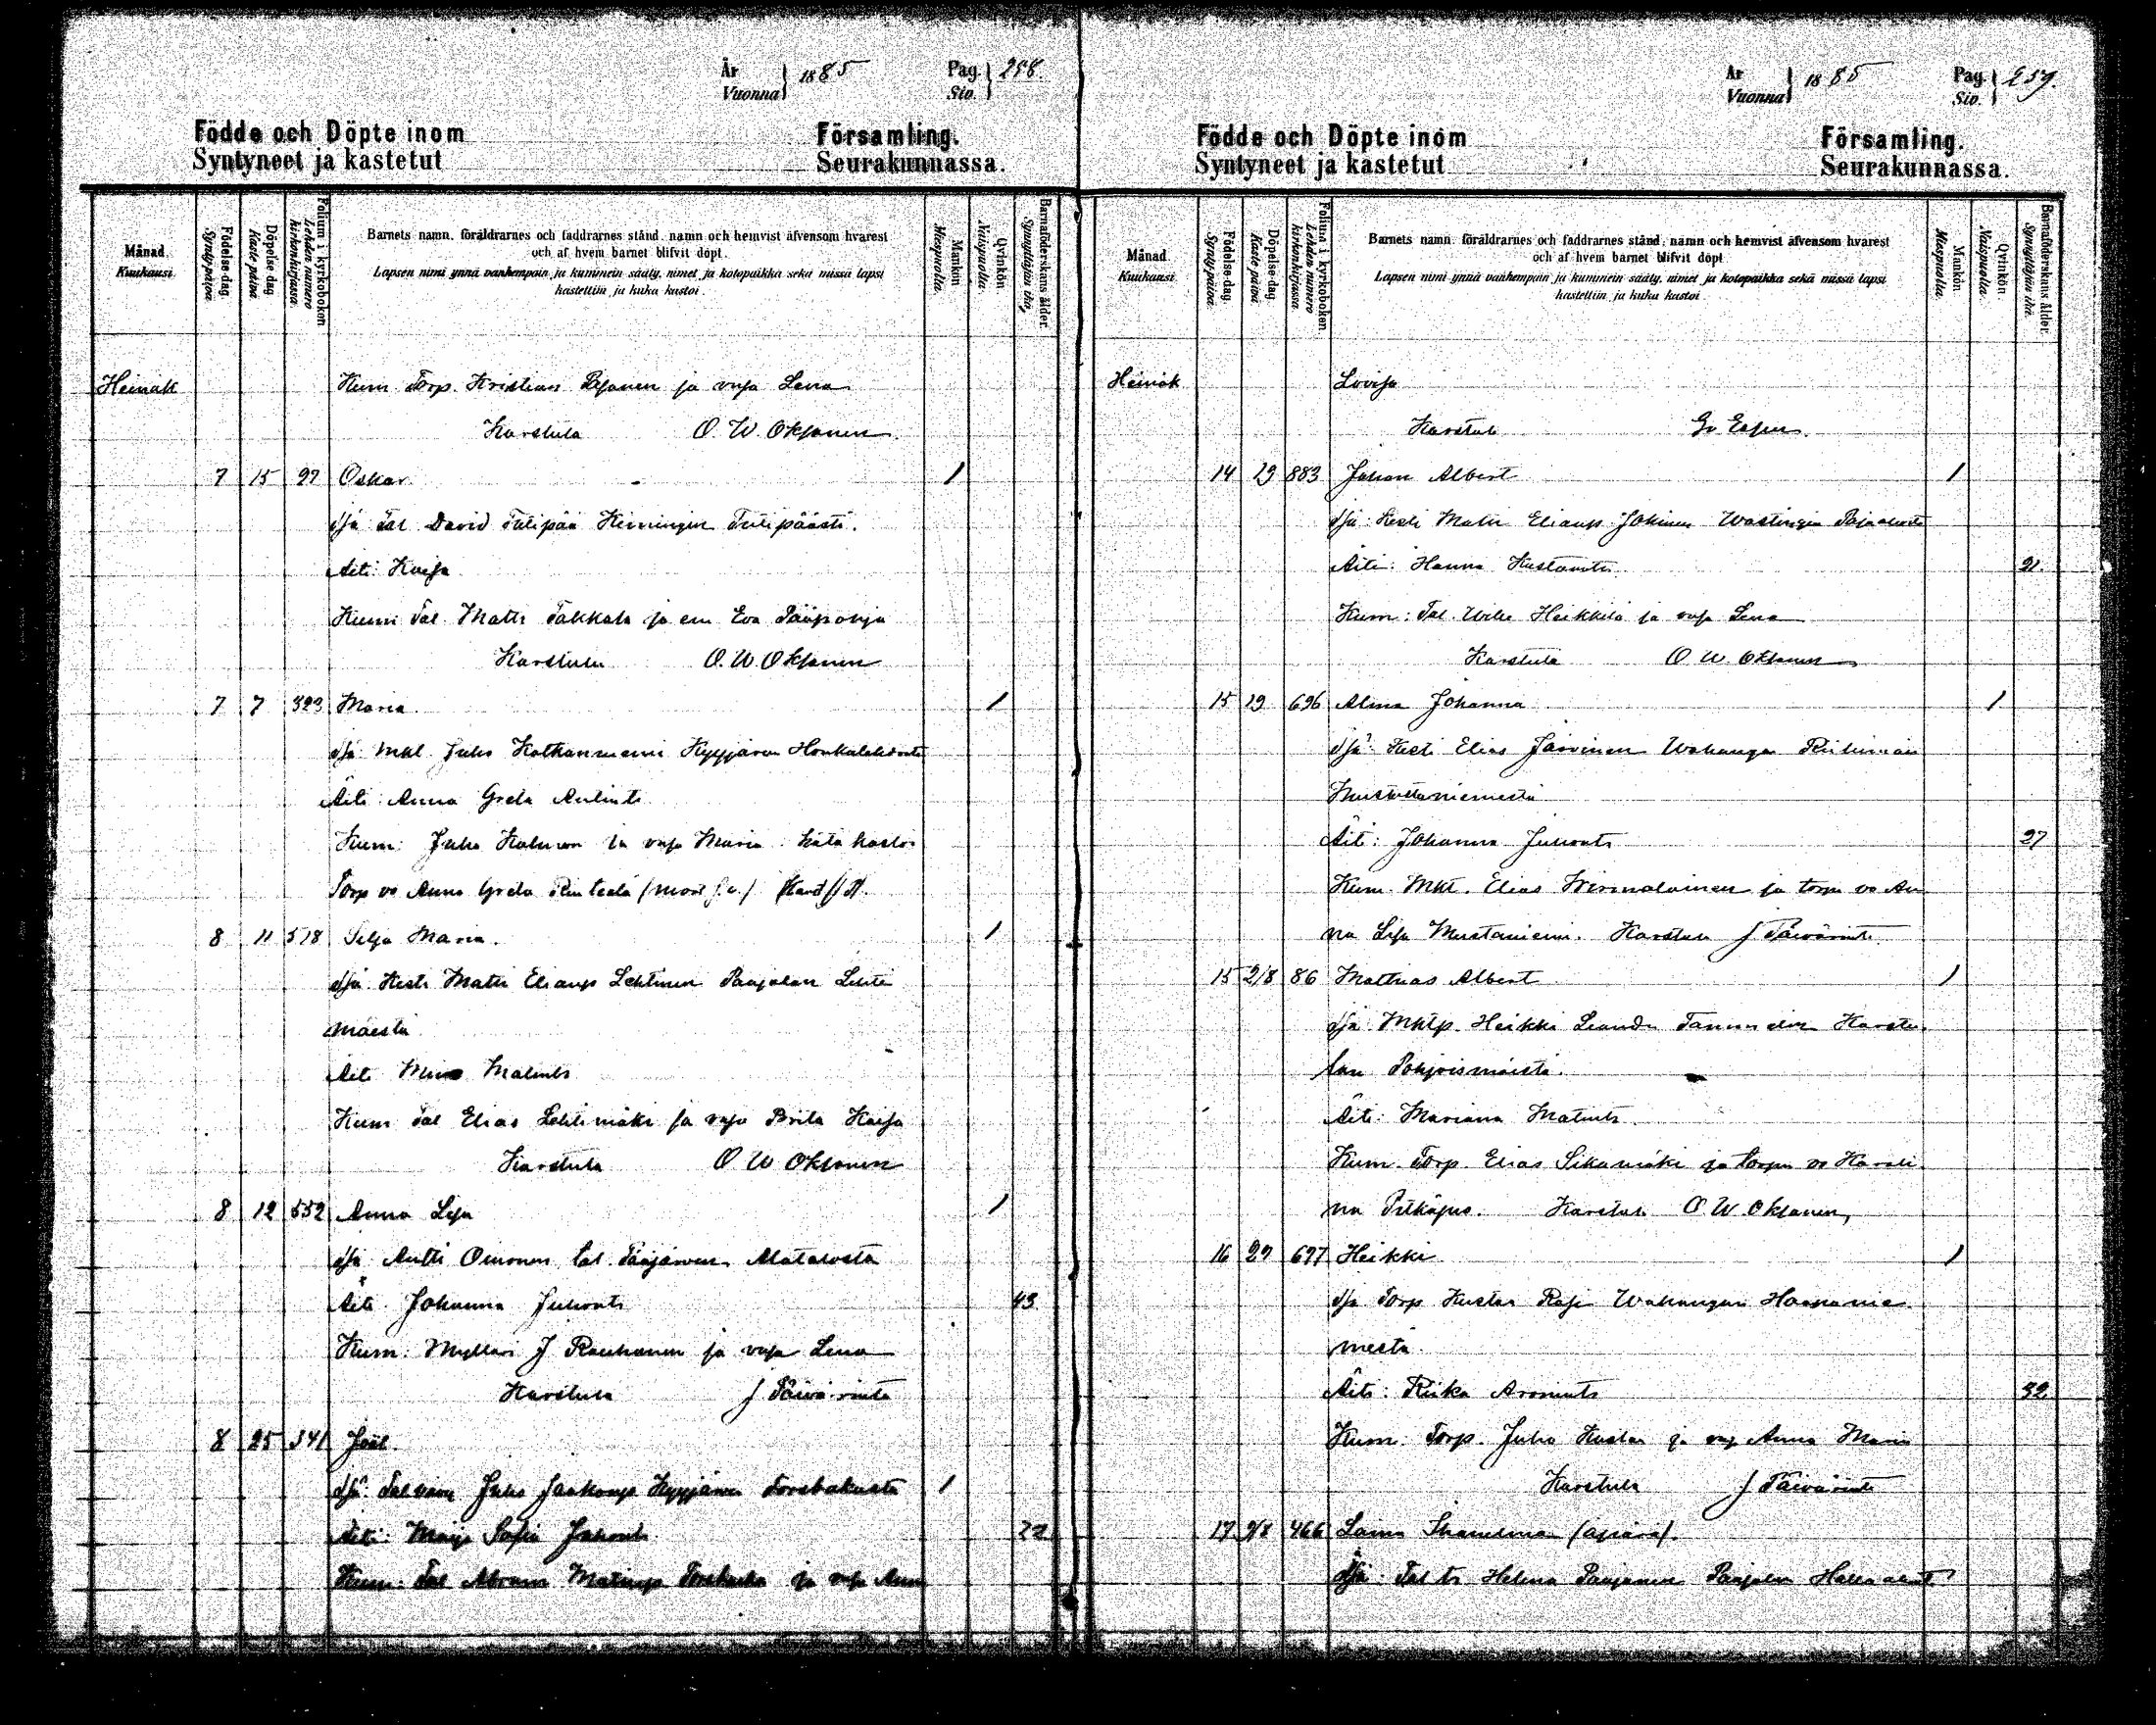 År
Vuonna } 1885
Pag.
Siv. } 258.
Födde och Döpte inom Församling.
Syntyneet ja kastetut Seurakunnassa.
Månad.
Kuukausi.
Födelse-dag.
Synty-päivä.
Döpelse-dag
Kaste-päivä
Folium i kyrkoboken
Lehden numero kirkonkirjassa.
Barnets namn, föräldrarnes och faddrarnes stånd, namn och hemvist äfvensom hvarest
och af hvem barnet blifvit döpt.
Lapsen nimi ynnä vanhempain ja kummein sääty, nimet ja kotopaikka sekä missä lapsi
kastettiin ja kuka kastoi.
Mankön
Miespuolia.
Qvinkön
Naispuolia.
Barnaföderskans ålder.
Synnyttäjän ikä.
Heinäk Kum Torp. Kristian Pajanen ja vaja Lena
Karstula O. W. Oksanen
7 15 97 Oskar 1
Isä Tal David Tulipää Kiminginn Tulipäästä.
Äiti: Kaisa
Kum: Tal Matti Takkala ja em Eva Pääpohja
Karstula O. W. Oksanen
7 7 323 Maria 1
Isä Mkl Juho Kotkanniemi Kyyjärven Honkalehdosta
Äiti Anna Greta Antints
Kum: Juho ja vaja Maria
Torp vo Anna Greta
8 11 578 Selja Maria. 1
Isä Kesti Matti Eliaup Lehtinen Paajalan Lehti
mäestä
Äiti Mina Matints
Kum Tal Elias Lehtimäki ja vaja Brita Kaisa
Karstula O W Oksanen
8 12 552 Anna Lisa 1
Isä Antti Oinonen tal. Pääjärven Matalosta
Äiti. Johanna Juhonts 43
Kum: Mylläri J Rauhanen ja vaja Lena
Karstula J Päivärinta
8 25 341 Joel.
Isä: Tal Juho Jaakonp Kyyjärven Forsbakasta 1
Äiti: Maija Sofia Juhonts 22
Kum: Tal Abram Matinp Forsbacka ja vaja Anna
År
Vuonna } 1885
Pag.
Siv. } 259.
Födde och Döpte inom Församling.
Syntyneet ja kastetut Seurakunnassa.
Månad
Kuukausi.
Födelse-dag.
Synty-päivä.
Döpelse-dag
Kaste-päivä
Folium i kyrkoboken.
Lehden numero kirkonkirjassa.
Barnets namn, föräldrarnes och faddrarnes stånd, namn och hemvist äfvensom hvarest
och af hvem barnet blifvit döpt
Lapsen nimi ynnä vanhempain ja kummein sääty, nimet ja kotopaikka sekä missä lapsi
kastettiin ja kuka kastoi.
Mankön
Miespuolia.
Qvinkön.
Naispuolia.
Barnaföderskans ålder.
Synnyttäjän ikä.
Heinäk Lovisa
Karstula
14 19 883 Johan Albert 1
Isä: Kesti Matti Eliaup Jokinen Wastingin
Äiti: Hanna Kustaants 21.
Kum: Tal. Wille Heikkilä ja vaja Lena
Karstula O W Oksanen
15 19 696 Alma Johanna 1
Isä: Kesti Elias Järvinen Wahangan
Äiti: Johanna Juhonts 27
Kum. Mkl. Elias ja torpn vo An
na Lisa Mustaniemi. Karstula J Päivärinta
15 2/8 86 Mathias Albert 1
Isä Mktp. Heikki Leander Tanunen Karstu
lan Pohjoismäistä.
Äiti: Mariana Matints
Kum. Torp. Elias Sikamäki ja torpn vo Karoli
na Pitkäpuro. Karstula O. W. Oksanen,
16 27 697 Heikki 1
Isä Torp Kustaa Raja Wahangan Haananie
mestä.
Äiti: Riika Aronints 32
Kum: Torp. Juho Kustaa ja vaj Anna Maria
Karstula J Päivärinta
17 9/8 466 Laina (äpärä).
Äiti: Tal ts Helena Paajanen Paajalan